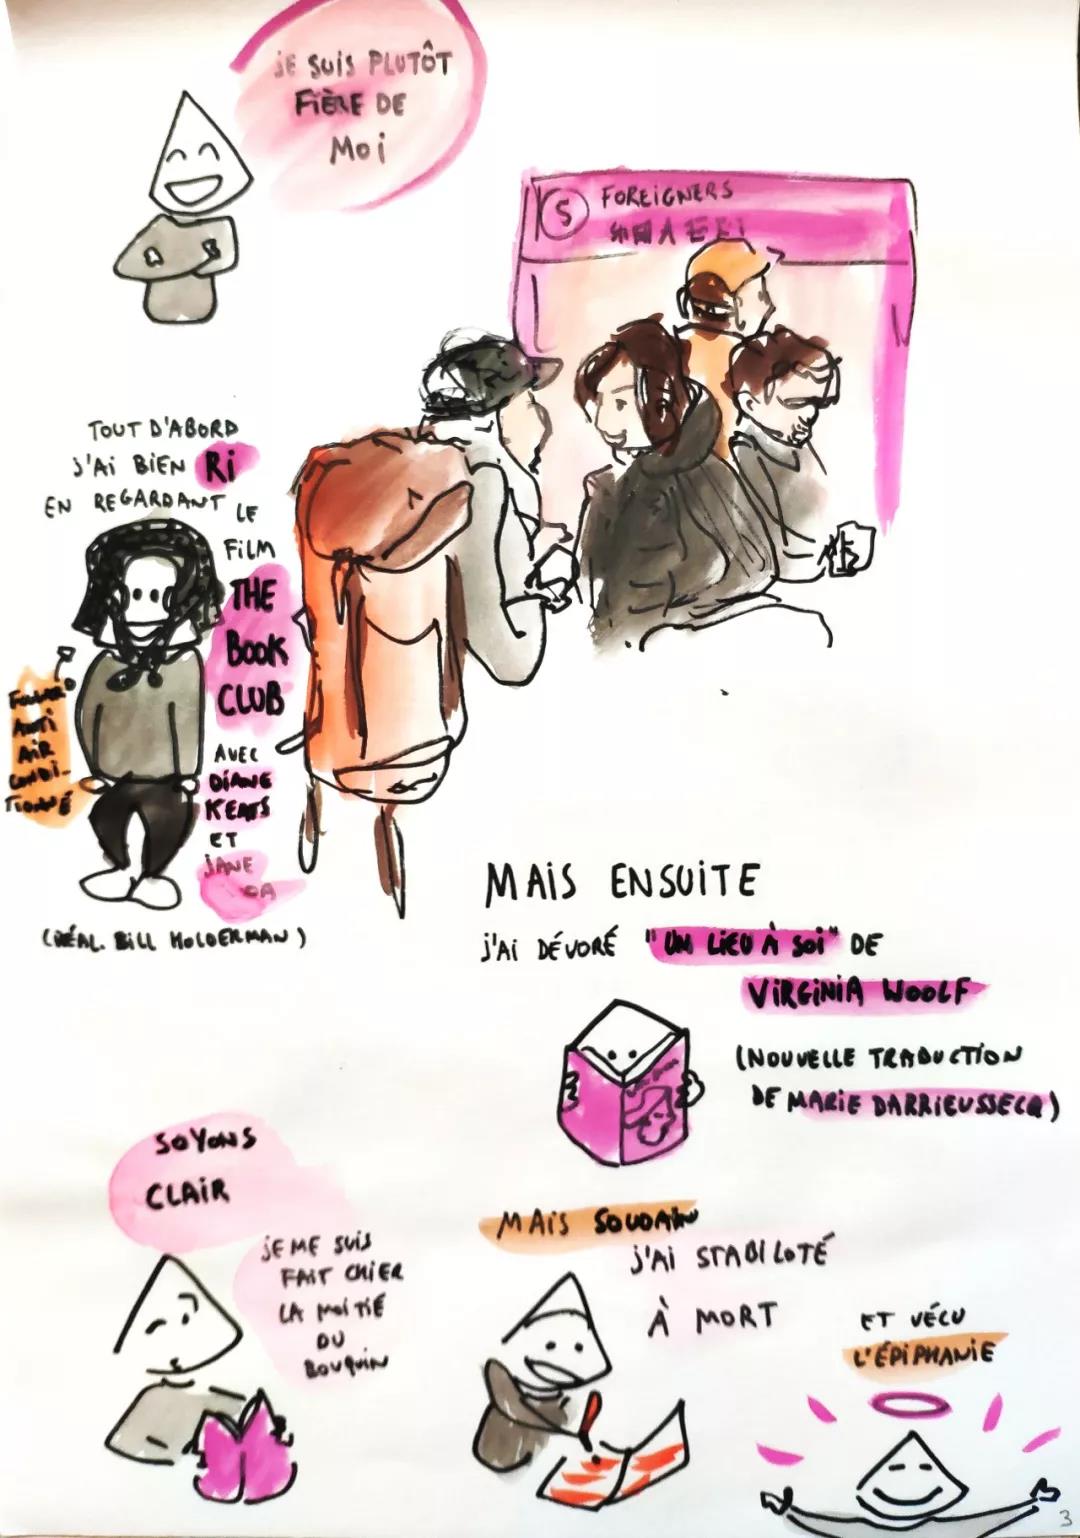 JE SUIS PLUTÔT
FIÈRE DE
MOI
5 FOREIGNERS
TOUT D'ABORD
J'AI BIEN RI
EN REGARDANT LE
FILM
THE
BOOK
CLUB
AVEC
DIANE
KEATS
ET
JANE
FOULARD
ANTI
AIR
CONDI-
TIONNÉ
(RÉAL. BILL HOLDERMAN)
MAIS ENSUITE
J'AI DÉVORÉ "UN LIEU À SOI" DE
VIRGINIA WOOLF
(NOUVELLE TRADUCTION
DE MARIE DARRIEUSSECQ)
SOYONS
CLAIR
JE ME SUIS
FAIT CHIER
LA MOITIÉ
DU
BOUQUIN
MAIS SOUDAIN
J'AI STABILOTÉ
À MORT
ET VÉCU
L'ÉPIPHANIE
3